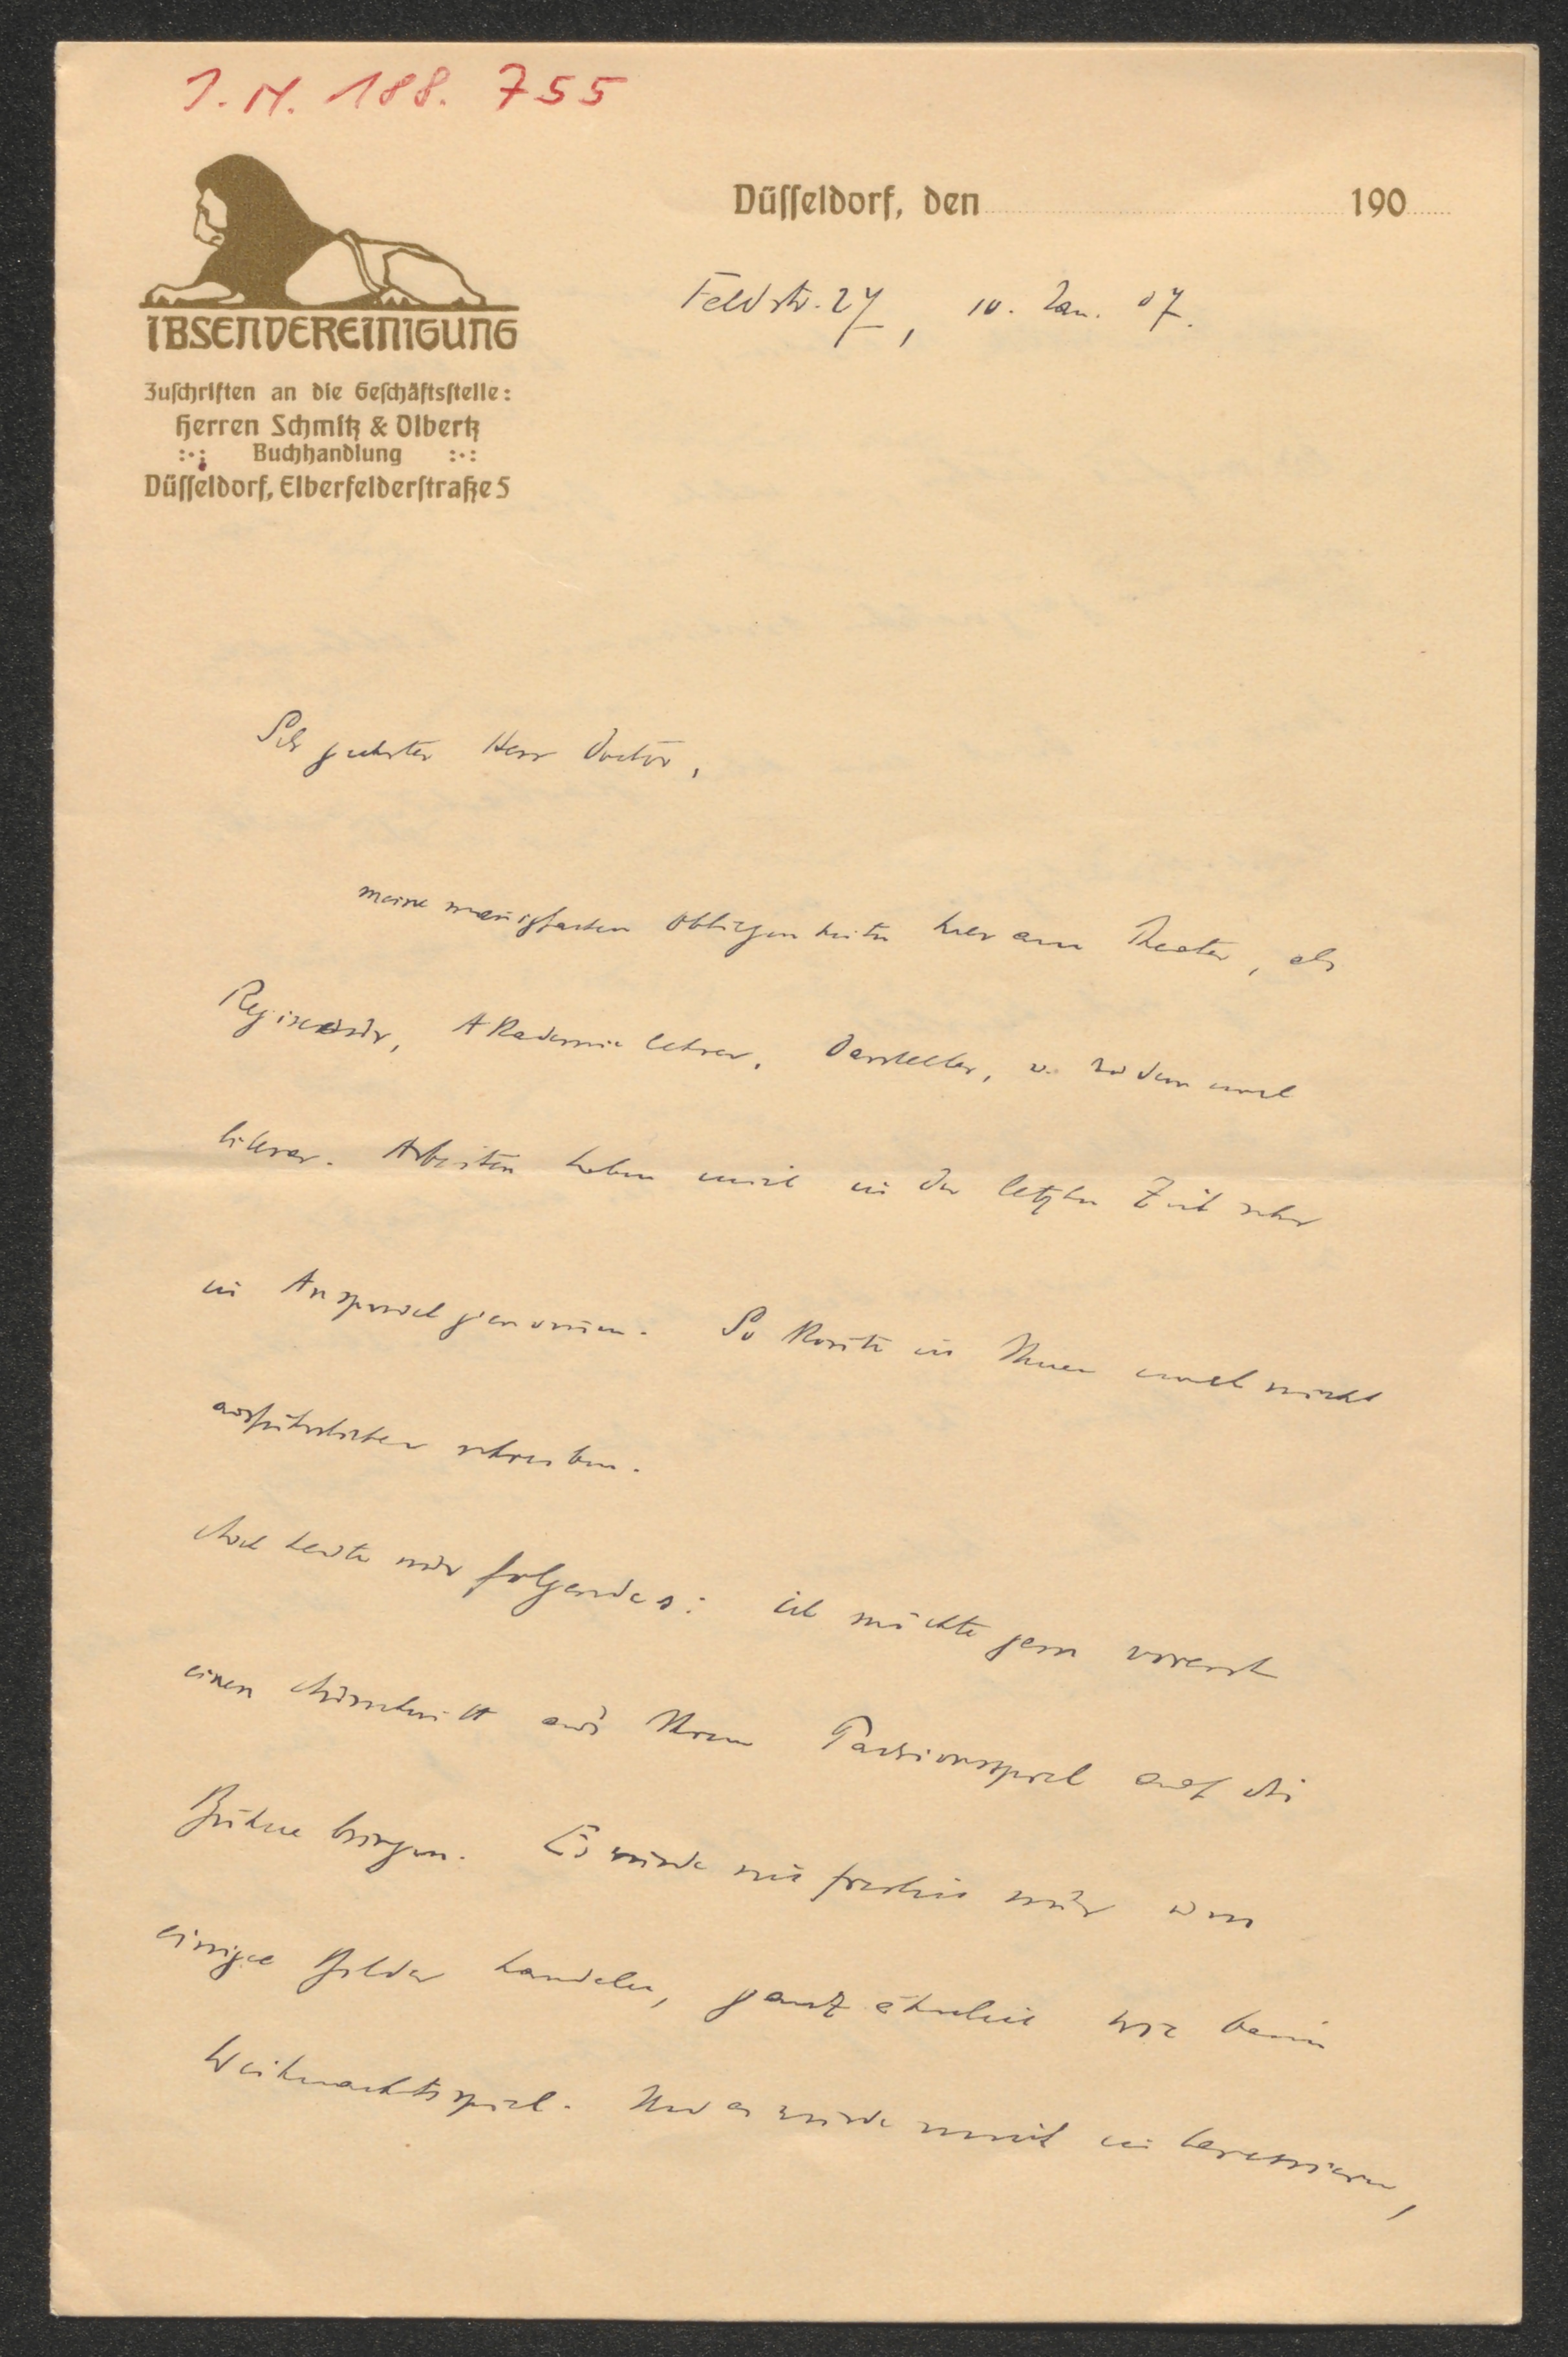 J. N. 188. 755
IBSENVEREINIGUNG
Zuschriften an die Geschäftsstelle:
Herren Schmitz & Olbertz
:·: Buchhandlung :·:
Düsseldorf, Elberfelderstraße 5
Düsseldorf, den 190
Feldstr. 27, 10. Jan. 07.
Sehr geehrter Herr Doctor,
meine manigfachen Obliegenheiten hier am Theater, als
Regisseur, Akademielehrer, Darsteller, u. zudem noch
literar. Arbeiten haben mich in der letzten Zeit sehr
in Anspruch genommen. So konnte ich Ihnen noch nicht
ausführlicher schreiben.
Auch heute nur folgendes: ich möchte gern vorerst
einen Ausschnitt aus Ihrem Passionsspiel auf die
Bühne bringen. Es würde sich freilich nur um
einige Bilder handeln, ganz ähnlich wie beim
Weihnachtsspiel. Und es würde mich interessieren,